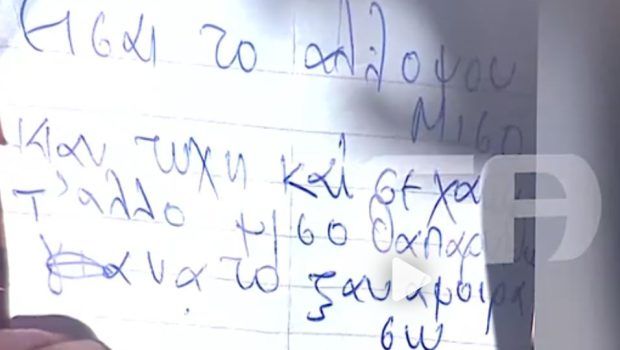 Εισαι το αλλομου
Μισο
Κιαν τυχη και σε χα
Τ'αλλο μισο θα παρω
για να το ξαναμοιρα
σω